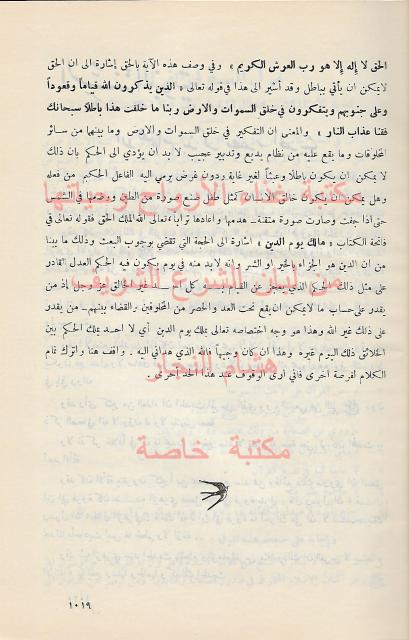 الحق لا إله إلا هو رب العرش الكريم » وفي وصف هذه الآية بالحق إشارة الى ان الحق
لا يمكن ان يأتي بباطل وقد أشير الى هذا في قوله تعالى « الذين يذكرون الله قياماً وقعوداً
وعلى جنوبهم ويتفكرون في خلق السموات والارض ربنا ما خلقت هذا باطلاً سبحانك
فقنا عذاب النار » والمعنى ان التفكير في خلق السموات والارض وما بينهما من سائر
المخلوقات وما يقع عليه من نظام بديع وتدبير عجيب لا بد ان يؤدي الى الحكم بان ذلك
لا يمكن ان يكون باطلاً وعبثاً لغير غاية ودون غرض يرمي اليه الفاعل الحكيم من فعله
وهل يمكن ان يكون خالق الانسان كمثل طفل صنع صورة من الطين ووضعها في الشمس
مكتبة غذاء الأرواح وحياتها
حتى اذا جفت وصارت صورة متقنة هدمها واعادها تراباً، تعالى الله الملك الحق فقوله تعالى في
فاتحة الكتاب « مالك يوم الدين » اشارة الى الحجة التي تقضي بوجوب البعث وذلك ما بينا
من ان الدين هو الجزاء بالخير او الشر وإنه لابد منه في يوم يكون فيه الحكم العدل القادر
من لبان الشرع الشريف
على مثل ذلك الحكم الذي يعجز عن القيام به كل احد الخالق عز وجل إذ من
يقدر على حساب ما لا يمكن ان يقع تحت العد والحصر من المخلوقين والقضاء بينهم من يقدر
على ذلك غير الله وهذا هو وجه اختصاصه تعالى بملك يوم الدين أي لا احد يملك الحكم بين
الخلائق ذلك اليوم غيره وهذا ان كان وجيهاً فالله الذي هداني اليه . واقف هنا واترك تمام
هشام النجار
الكلام لفرصة اخرى فاني ارى الوقوف عند هذا الحد احرى .
مكتبة خاصة
١٠١٩